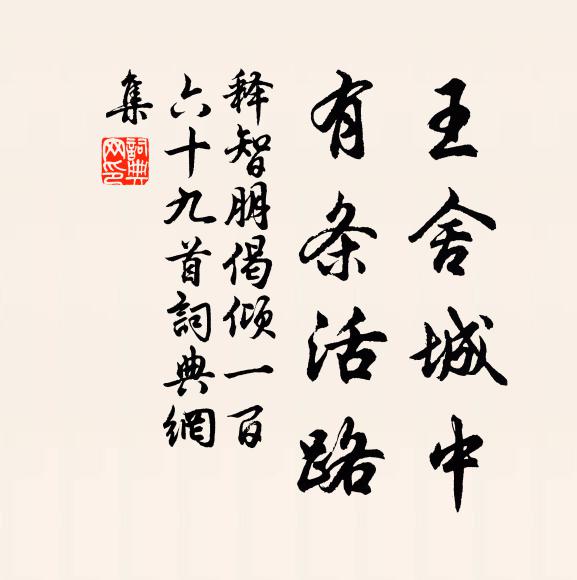 王舍城中
有条活路
释智朋偈倾一百
六十九首詞典網
集
詞典
网印